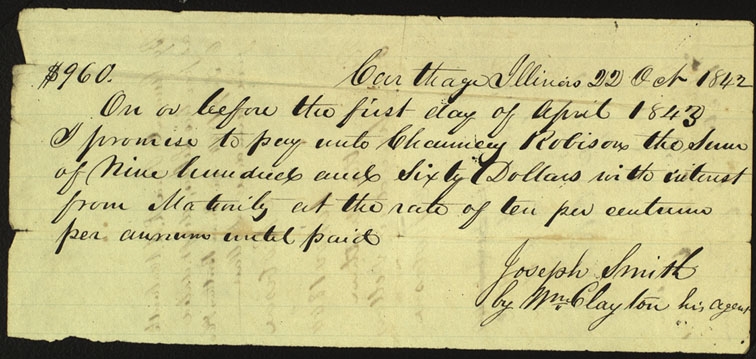 $960. Carthage Illinois 22 Oct 1842
On or before the first day of April 1843
I promise to pay unto Chauncey Robison the Sum
of Nine hundred and Sixty Dollars with interest
from Maturity at the rate of ten per centum
per annum until paid
Joseph Smith
by Wm Clayton his agent